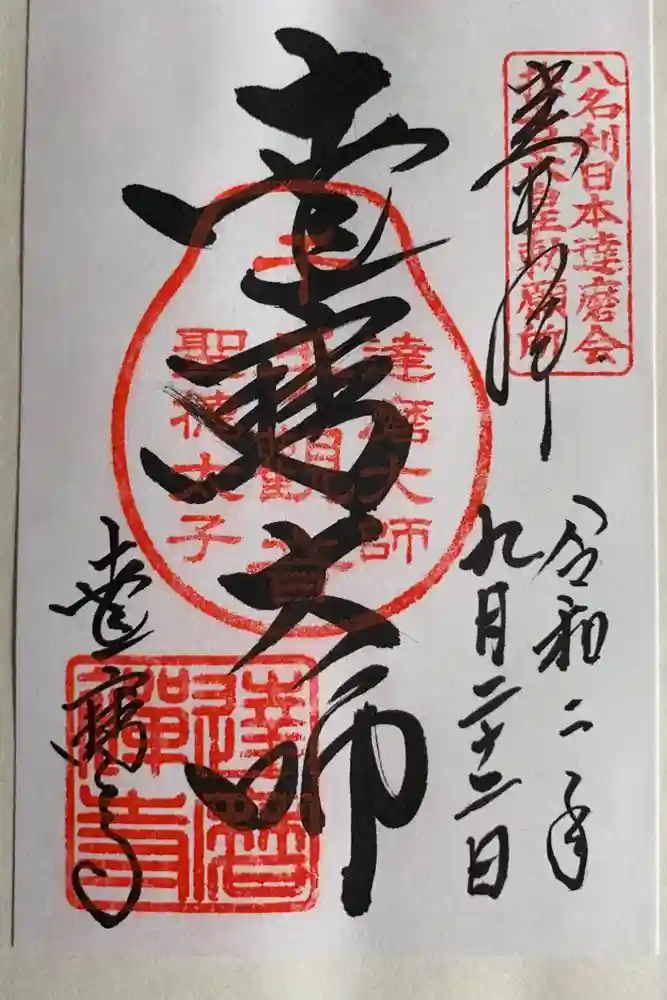 八名刹日本達磨会
勅願所
奉拝
令和二年
九月二十二日
達磨大師
達磨大師
千手観音
聖徳太子
達磨寺
達磨
禪寺